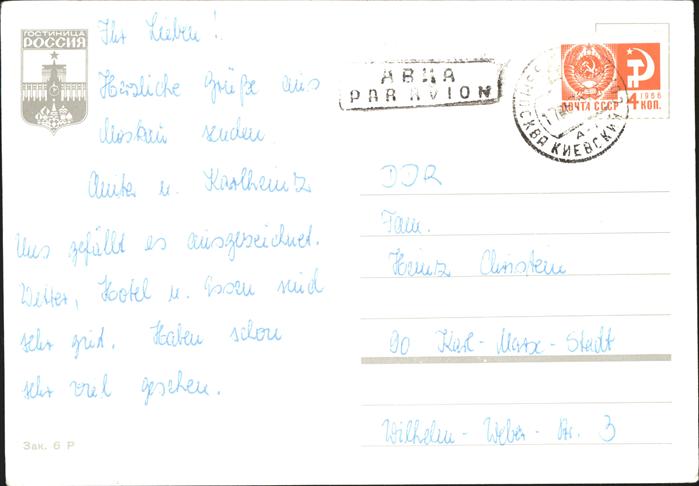 ГОСТИНИЦА
РОССИЯ
Ihr Lieben!
Herzliche Grüße aus
Moskau senden
Anita u. Karlheinz
Uns gefällt es ausgezeichnet.
Wetter, Hotel u. Essen sind
sehr gut. Haben schon
sehr viel gesehen.
Зак. 6 Р
АВИА
PAR AVION
ПОЧТА СССР
1966
4 КОП.
МОСКВА КИЕВСКИЙ
DDR
Fam.
Heinz Christein
90 Karl-Marx-Stadt
Wilhelm-Weber-Str. 3